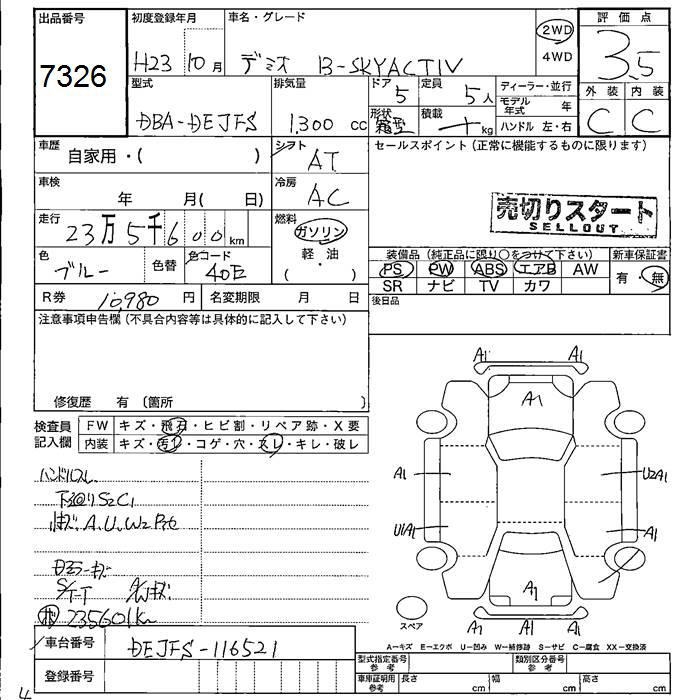 出品番号
7326
初度登録年月
H23 10月
車名・グレード
デミオ 13-SKYACTIV
2WD
4WD
評価点
3.5
外装 内装
C C
型式
DBA-DEJFS
排気量
1,300 cc
ドア
5
形状
箱型
定員
5人
積載
kg
ディーラー・並行
モデル年式 年
ハンドル 左・右
車歴
自家用・( )
シフト
AT
車検
年 月( 日)
冷房
AC
走行
23万5千600km
燃料
ガソリン
軽・油
( )
色
ブルー
色替
色コード
40E
R券 10,980円
名変期限 月 日
セールスポイント(正常に機能するものに限ります)
売切りスタート
SELLOUT
装備品(純正品に限り○をつけて下さい)
PS PW ABS エアB AW
SR ナビ TV カワ
新車保証書
有・無
後日品
注意事項申告欄(不具合内容等は具体的に記入して下さい)
修復歴 有(箇所 )
検査員記入欄
FW キズ・飛石・ヒビ割・リペア跡・X要
内装 キズ・汚レ・コゲ・穴・スレ・キレ・破レ
ハンドルスレ
下回りS2C1
A,U,W2
235601km
A1 A1
A1
A1 U2A1
U1A1 A1
A1
A1 A1 A1
スペア
A=キズ E=エクボ U=凹み W=補修跡 S=サビ C=腐食 XX=交換済
車台番号 DEJFS-116521
登録番号
型式指定番号 参考
類別区分番号 参考
車庫証明用 参考
長さ cm 幅 cm 高さ cm